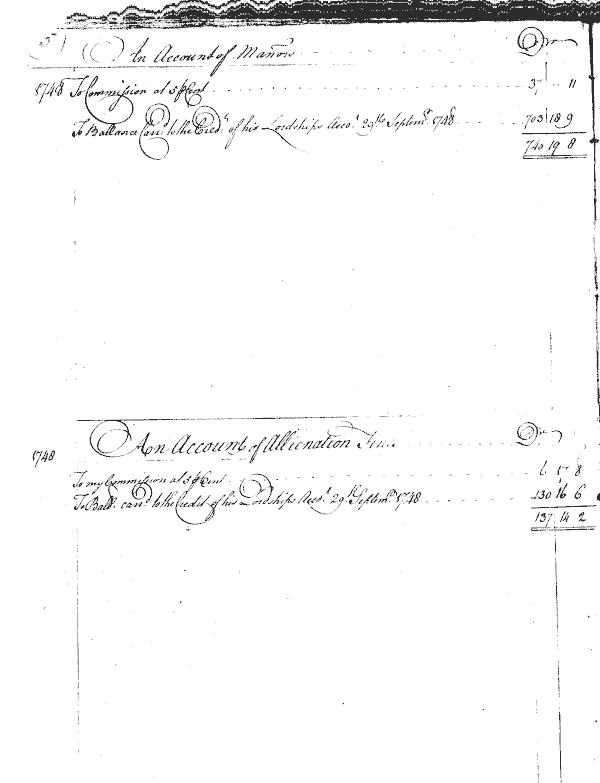 An Account of Manors Dr
1748 To Commission at 5 ℔ Cent 37 .. 11
To Ballance Carrd to the Credt of his Lordships Accot 29th Septemr 1748 703 18 9
740 19 8
An Account of Allienation Fines Dr
1748
To my Commission at 5 ℔ Cent 6 17 8
To Ballce carrd to the Credit of his Lordships Accot 29th Septemr 1748 130 16 6
137 14 2